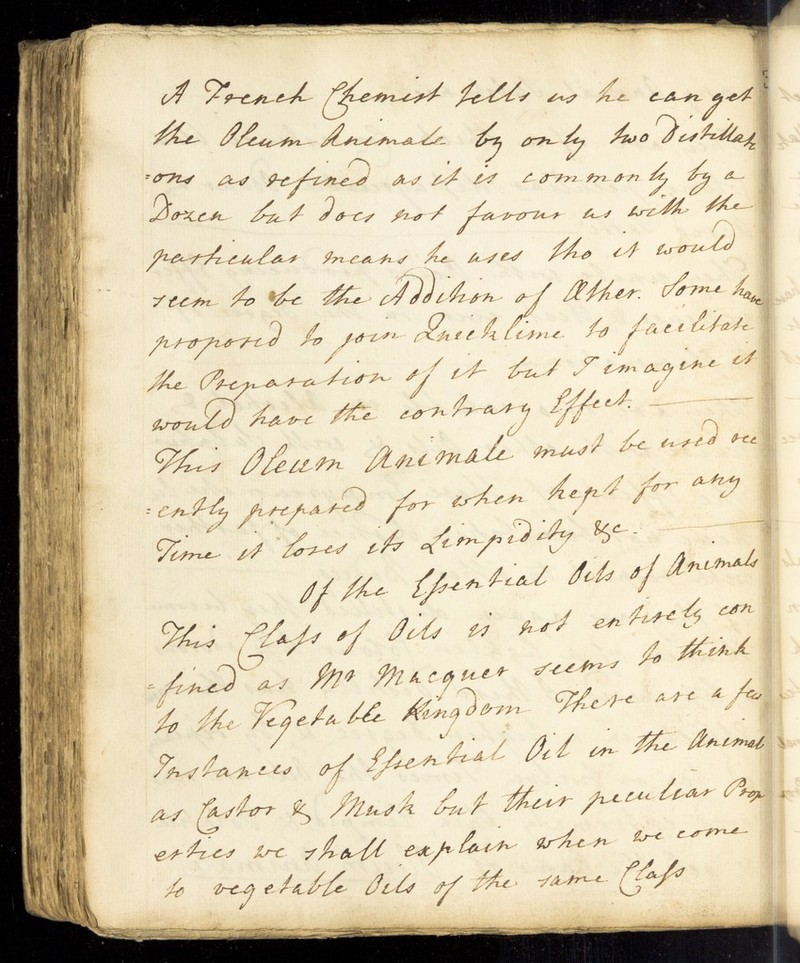 A French Chemist tells us he can get
the Oleum Animale by only two Distillati
=ons as refined as it is commonly by a
Dozen but does not favour us with the
particular means he uses tho it would
seem to be the Addition of Æther. Some have
proposed to join Quicklime to facilitate
the Preparation of it but I imagine it
would have the contrary Effect.
This Oleum Animale must be used rec
=ently prepared for when kept for any
Time it loses its Limpidity &c.
Of the Eſsential Oils of Animals
This Claſs of Oils is not entirely con
=fined as Mr Macquer seems to think
to the Vegetable Kingdom There are a few
Instances of Eſsential Oil in the Animal
as Castor & Musk but their peculiar Prop
erties we shall explain when we come
to vegetable Oils of the same Claſs